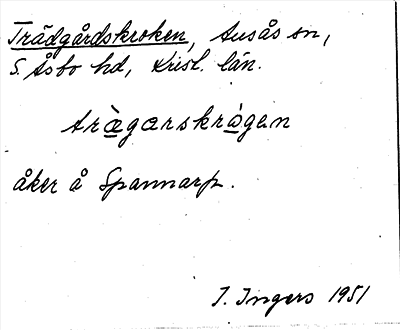 Trädgårdskroken, Ausås sn,
S. Åsbo hd, Krist. län.
træ̀garskrògen
åker å Spannarp.
I. Ingers 1951